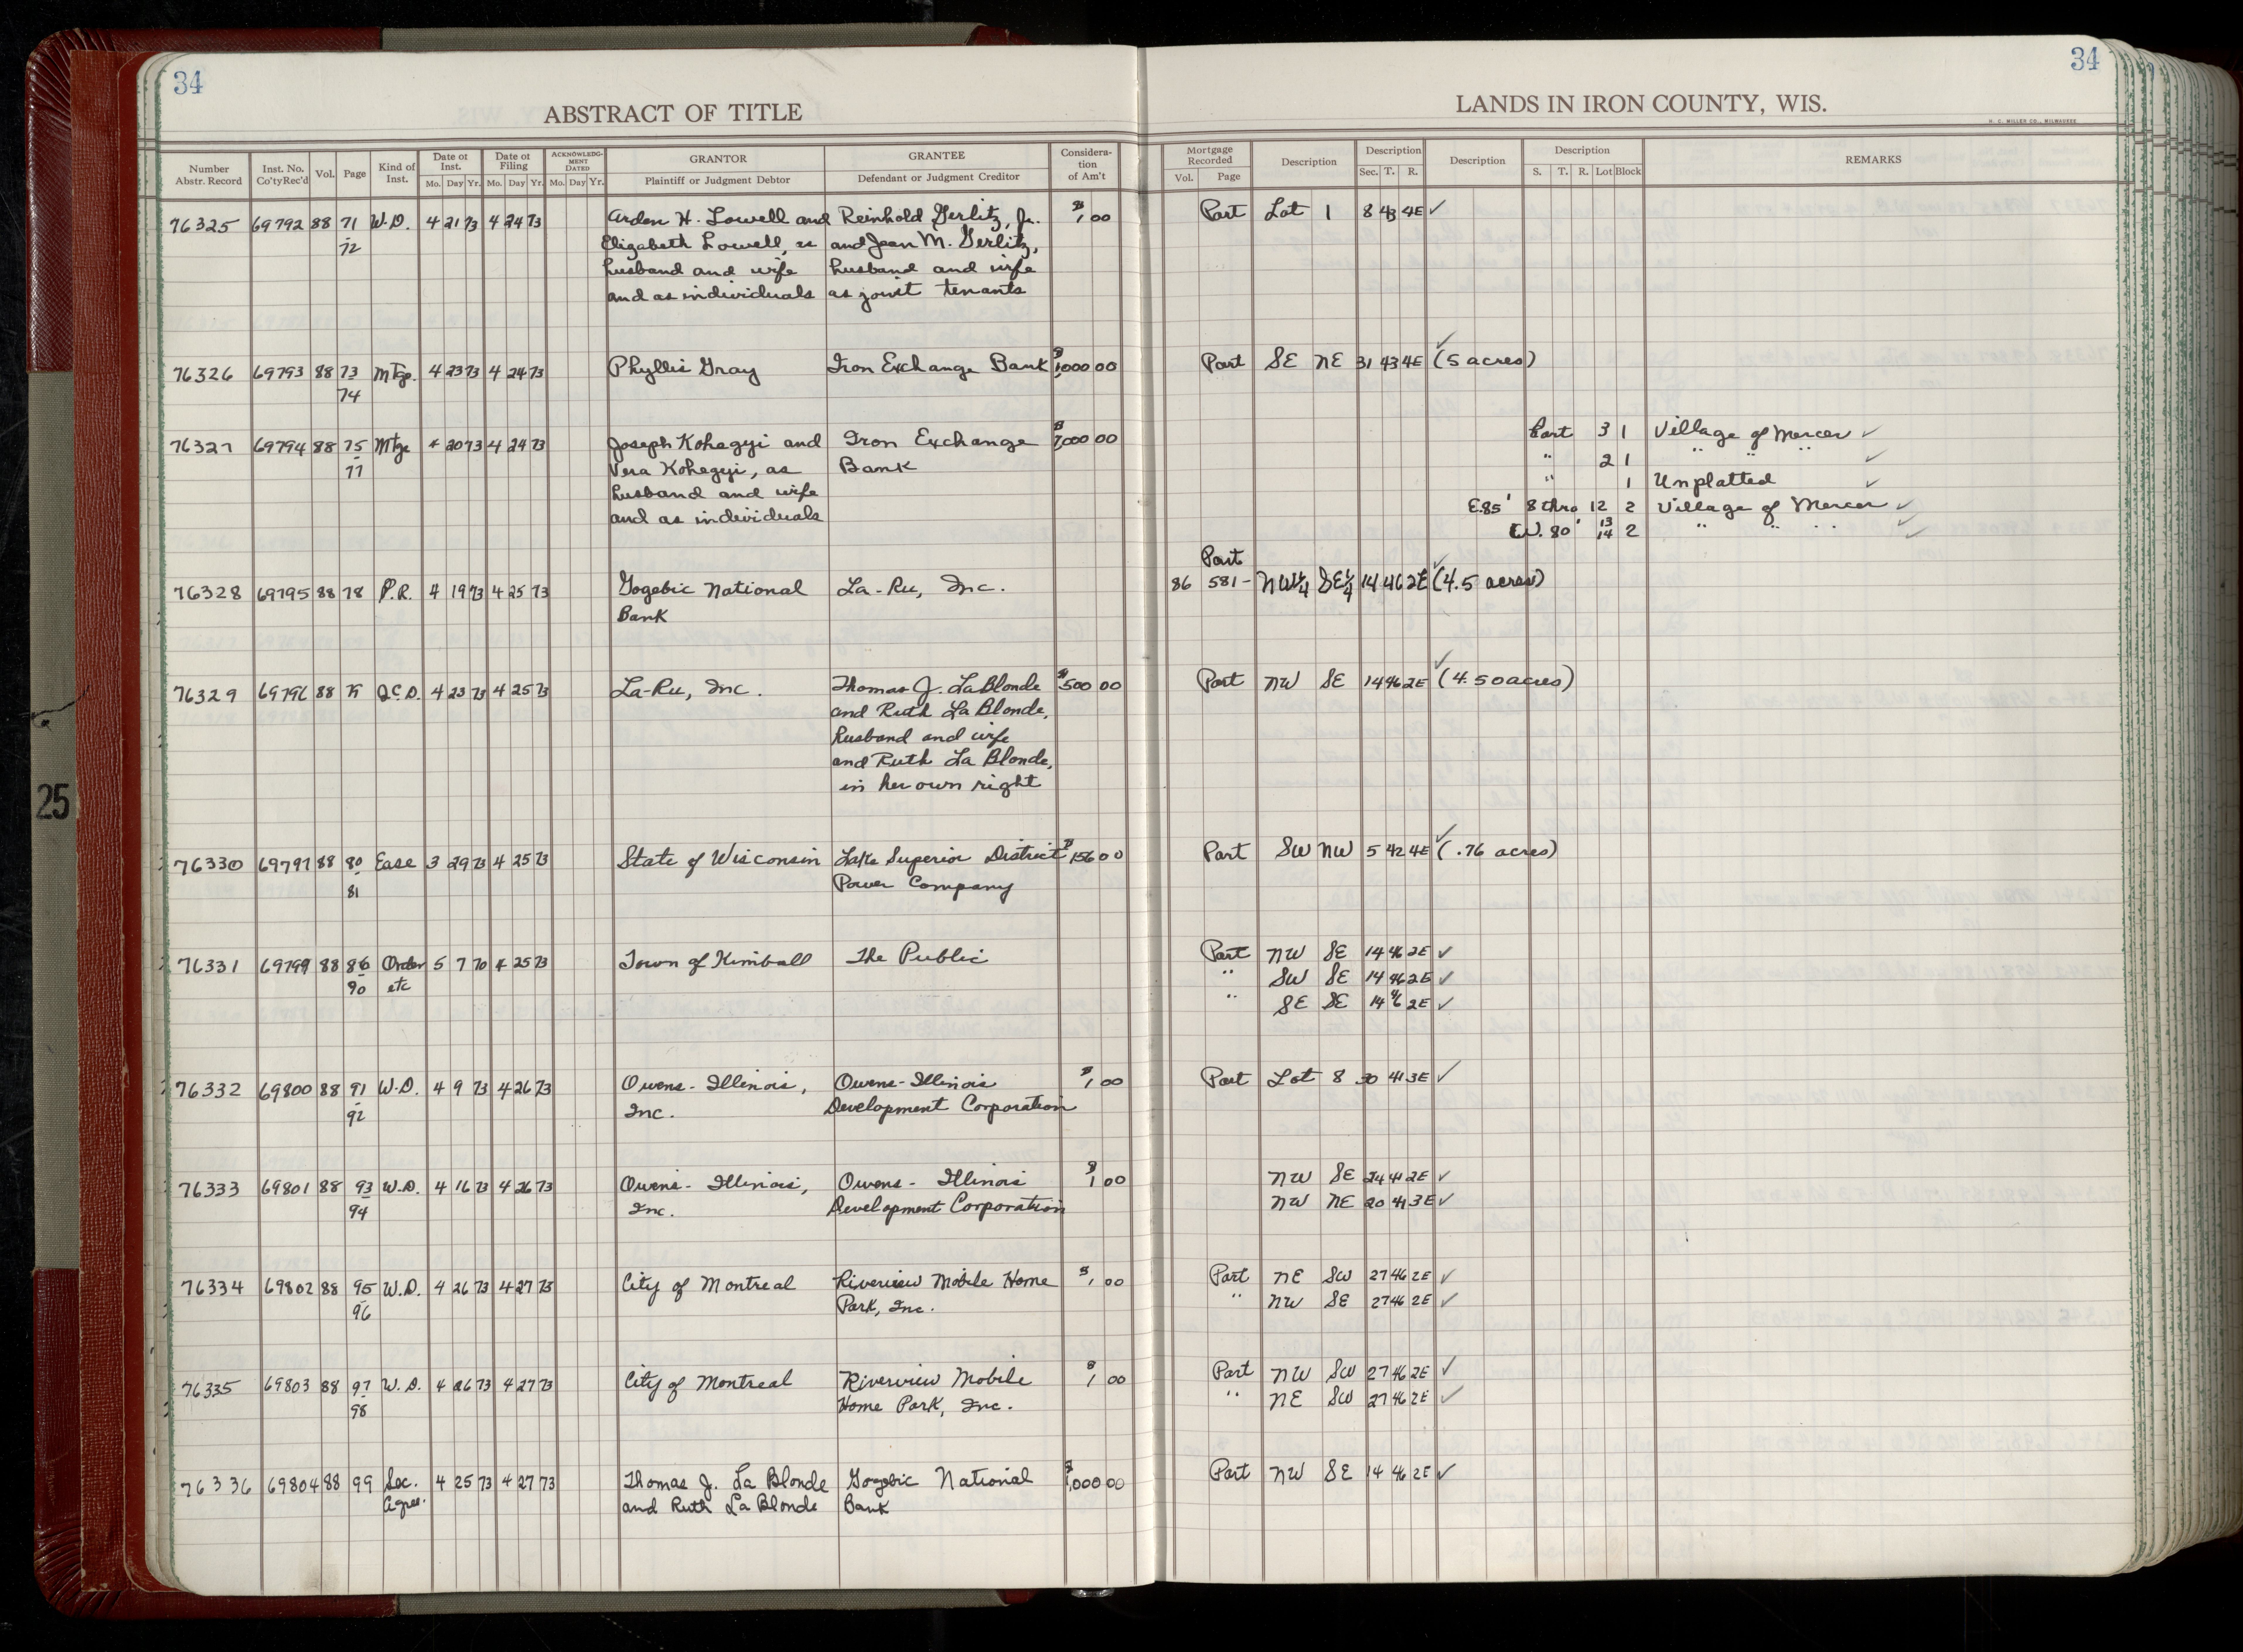 34
34
ABSTRACT OF TITLE
LANDS IN IRON COUNTY, WIS.
H. C. MILLER CO., MILWAUKEE
Number Abstr. Record Inst. No. Co'tyRec'd Vol. Page Kind of Inst. Date of Inst. Mo. Day Yr. Date of Filing Mo. Day Yr. ACKNOWLEDGMENT DATED Mo. Day Yr. GRANTOR Plaintiff or Judgment Debtor GRANTEE Defendant or Judgment Creditor Consideration of Am't Mortgage Recorded Vol. Page Description Description Sec. T. R. Description Description S. T. R. Lot Block REMARKS
76325 69792 88 71 W.D. 4 21 73 4 24 73 Arden H. Lowell and Reinhold Gerlitz, Jr. $1,00 Part Lot 1 8 43 4E ✓
72 Elizabeth Lowell, as and Jean M. Gerlitz,
husband and wife husband and wife
and as individuals as joint tenants
76326 69793 88 73 Mtge. 4 23 73 4 24 73 Phyllis Gray Iron Exchange Bank $1,000 00 Part SE NE 31 43 4E ✓ (5 acres)
74
76327 69794 88 75 Mtge 4 20 73 4 24 73 Joseph Kohegyi and Iron Exchange $7,000 00 Part 3 1 Village of Mercer ✓
77 Vera Kohegyi, as Bank " 2 1 " " " ✓
husband and wife " 1 Unplatted ✓
and as individuals E.85' 8 thro 12 2 Village of Mercer ✓
W. 80' 13 14 2 " " " ✓
Part
76328 69795 88 78 P.R. 4 19 73 4 25 73 Gogebic National La-Ru, Inc. 86 581- NW¼ SE¼ 14 46 2E ✓ (4.5 acres)
Bank
76329 69796 88 79 Q.C.D. 4 23 73 4 25 73 La-Ru, Inc. Thomas J. LaBlonde $500 00 Part NW SE 14 46 2E ✓ (4.50 acres)
and Ruth La Blonde,
husband and wife
and Ruth La Blonde,
in her own right
76330 69797 88 80 Ease 3 29 73 4 25 73 State of Wisconsin Lake Superior District $156 00 Part SW NW 5 42 4E ✓ (.76 acres)
81 Power Company
76331 69799 88 86 Order 5 7 70 4 25 73 Town of Kimball The Public Part NW SE 14 46 2E ✓
90 etc " SW SE 14 46 2E ✓
" SE SE 14 46 2E ✓
76332 69800 88 91 W.D. 4 9 73 4 26 73 Owens-Illinois, Owens-Illinois $1,00 Part Lot 8 30 41 3E ✓
92 Inc. Development Corporation
76333 69801 88 93 W.D. 4 16 73 4 26 73 Owens- Illinois, Owens- Illinois $1 00 NW SE 24 41 2E ✓
94 Inc. Development Corporation NW NE 20 41 3E ✓
76334 69802 88 95 W.D. 4 26 73 4 27 73 City of Montreal Riverview Mobile Home $1,00 Part NE SW 27 46 2E ✓
96 Park, Inc. " NW SE 27 46 2E ✓
76335 69803 88 97 W.D. 4 26 73 4 27 73 City of Montreal Riverview Mobile $1 00 Part NW SW 27 46 2E ✓
98 Home Park, Inc. " NE SW 27 46 2E ✓
76336 69804 88 99 Sec. 4 25 73 4 27 73 Thomas J. La Blonde Gogebic National $1,000 00 Part NW SE 14 46 2E ✓
Agree. and Ruth La Blonde Bank
25